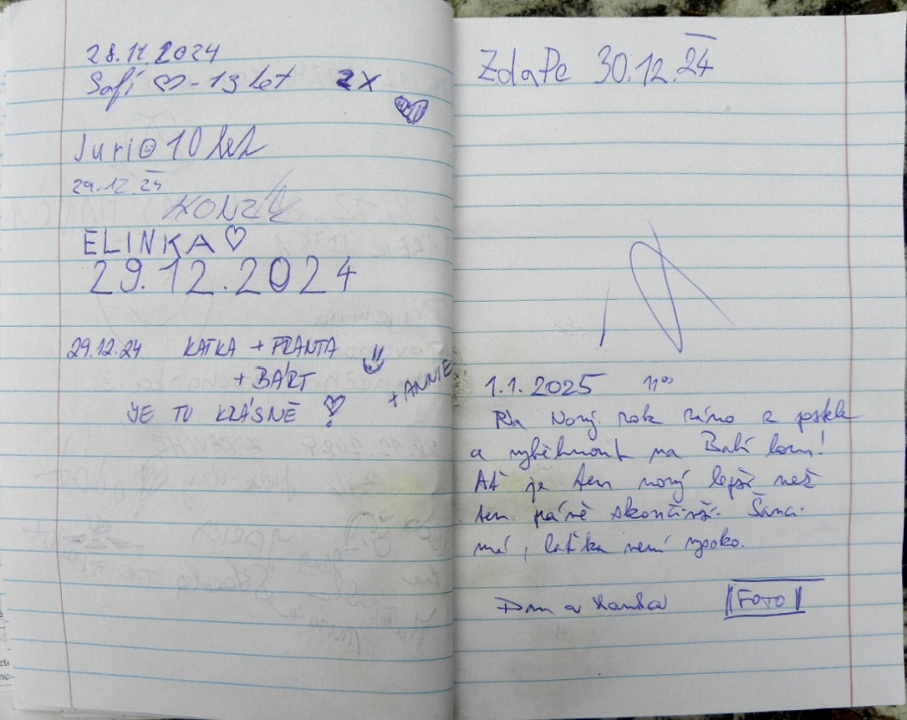 28.12.2024
Safí ♡ - 13 let 2x
Juri☺ 10 let
29.12 24
HONZA
ELINKA ♡
29.12.2024
29.12.24 KATKA + FRANTA
+ BÁRT
+ ANNIE
JE TU KRÁSNĚ
ZdaPe 30.12.24
1.1.2025 11⁰⁰
Na Nový rok ráno z postele
a vyběhnout na Babí lom!
Ať je ten nový lepší než
ten právě skončivší. Šanci
má, laťka není vysoko.
Dan a Hanka FOTO